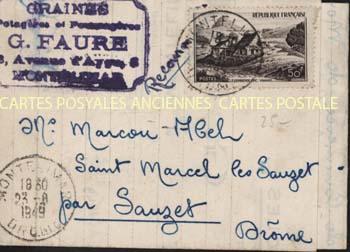 GRAINES
Potagères et Fourragères
G. FAURE
Avenue d'Aygu, 8
MONTÉLIMAR
RÉPUBLIQUE FRANÇAISE
POSTES
50F
CARTES POSTALES ANCIENNES CARTES POSTALE
25-
Mr Marcou Abel
Saint Marcel les Sauzet
par Sauzet
Drôme
MONTELIMAR
18 30
23 -8
1949
DROME